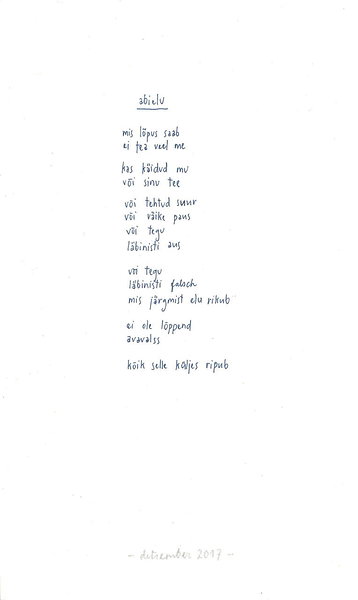 abielu
mis lõpus saab
ei tea veel me
kas käidud mu
või sinu tee
või tehtud suur
või väike paus
või tegu
läbinisti aus
või tegu
läbinisti falsch
mis järgmist elu rikub
ei ole lõppend
avavalss
kõik selle küljes ripub
- detsember 2017 -